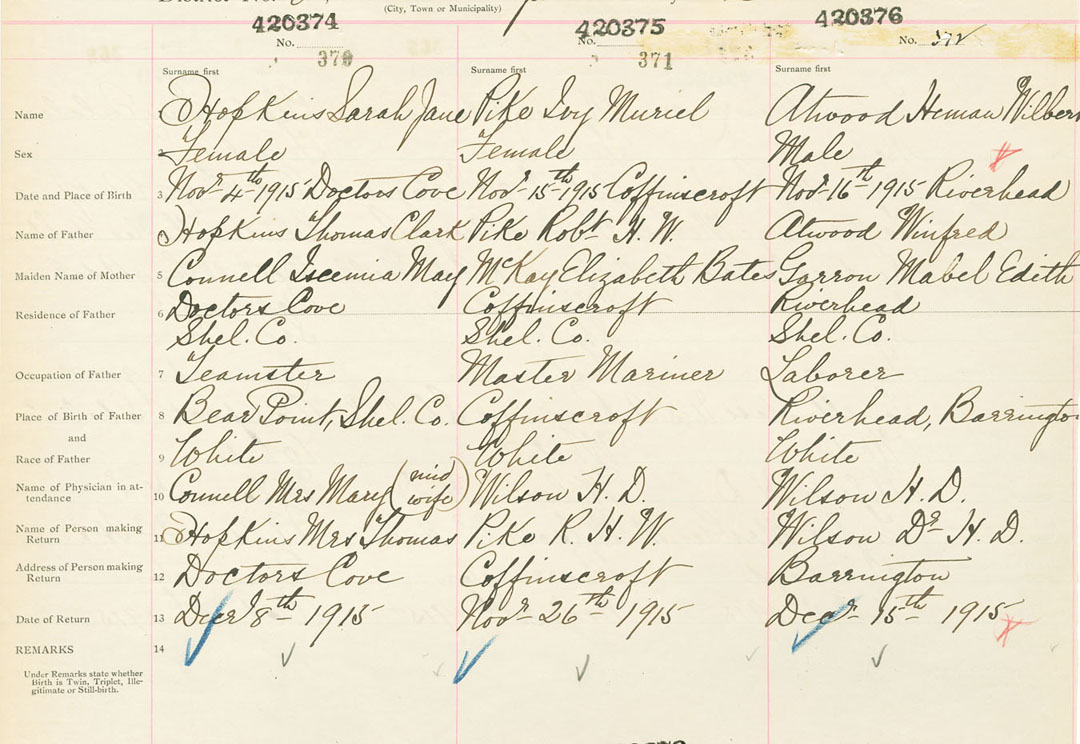 District No.
(City, Town or Municipality)
420374 420375 420376
No. No. No. 372
370 371
Surname first Surname first Surname first
Name Hopkins Sarah Jane Pike Ivy Muriel Atwood Heman Wilbert
Sex 2 Female Female Male
Date and Place of Birth 3 Novr 4th 1915 Doctors Cove Novr 15th 1915 Coffinscroft Novr 16th 1915 Riverhead
Name of Father Hopkins Thomas Clark Pike Robt H. W. Atwood Winfred
Maiden Name of Mother 5 Connell Iscemia May McKay Elizabeth Bates Garron Mabel Edith
Residence of Father 6 Doctors Cove Coffinscroft Riverhead
Shel. Co. Shel. Co. Shel. Co.
Occupation of Father 7 Teamster Master Mariner Laborer
Place of Birth of Father 8 Bear Point, Shel. Co. Coffinscroft Riverhead, Barrington
and
Race of Father 9 White White White
Name of Physician in at-
tendance 10 Connell Mrs Mary (mid wife) Wilson H. D. Wilson H. D.
Name of Person making
Return 11 Hopkins Mrs Thomas Pike R. H. W. Wilson Dr H. D.
Address of Person making
Return 12 Doctors Cove Coffinscroft Barrington
Date of Return 13 Decr 8th 1915 Novr 26th 1915 Decr 15th 1915
REMARKS 14
Under Remarks state whether
Birth is Twin, Triplet, Ille-
gitimate or Still-birth.